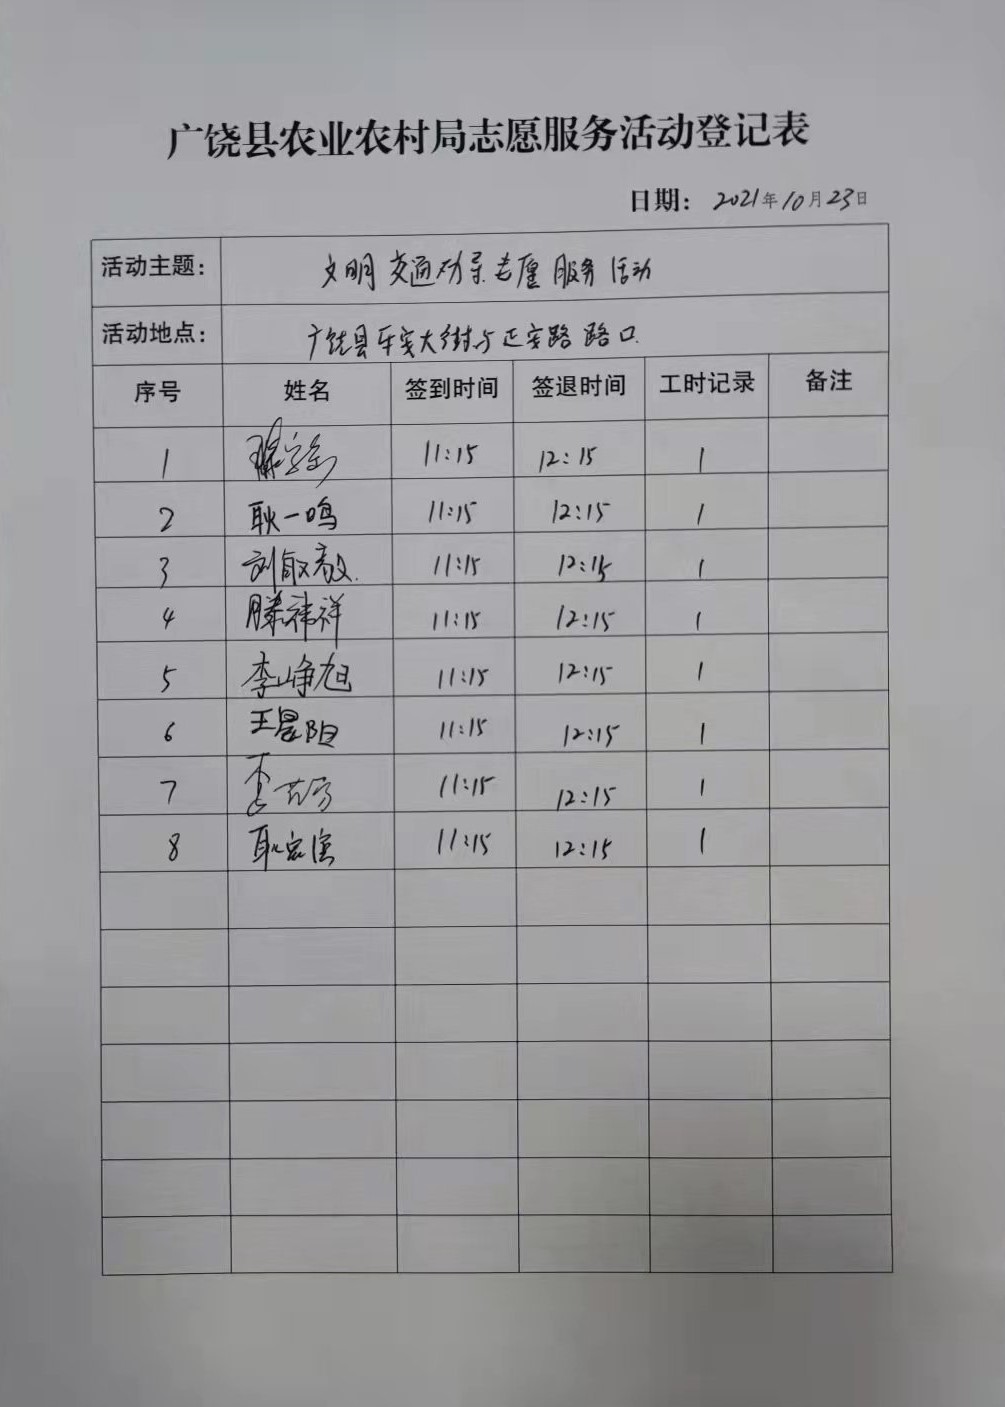 广饶县农业农村局志愿服务活动登记表
日期: 2021年10月23日
活动主题: 文明交通劝导志愿服务活动
活动地点: 广饶县乐安大街与正安路路口.
序号 姓名 签到时间 签退时间 工时记录 备注
1 11:15 12:15 1
2 耿一鸣 11:15 12:15 1
3 刘敬毅. 11:15 12:15 1
4 滕祎祥 11:15 12:15 1
5 李峥旭 11:15 12:15 1
6 王晨阳 11:15 12:15 1
7 李 11:15 12:15 1
8 耿宏 11:15 12:15 1